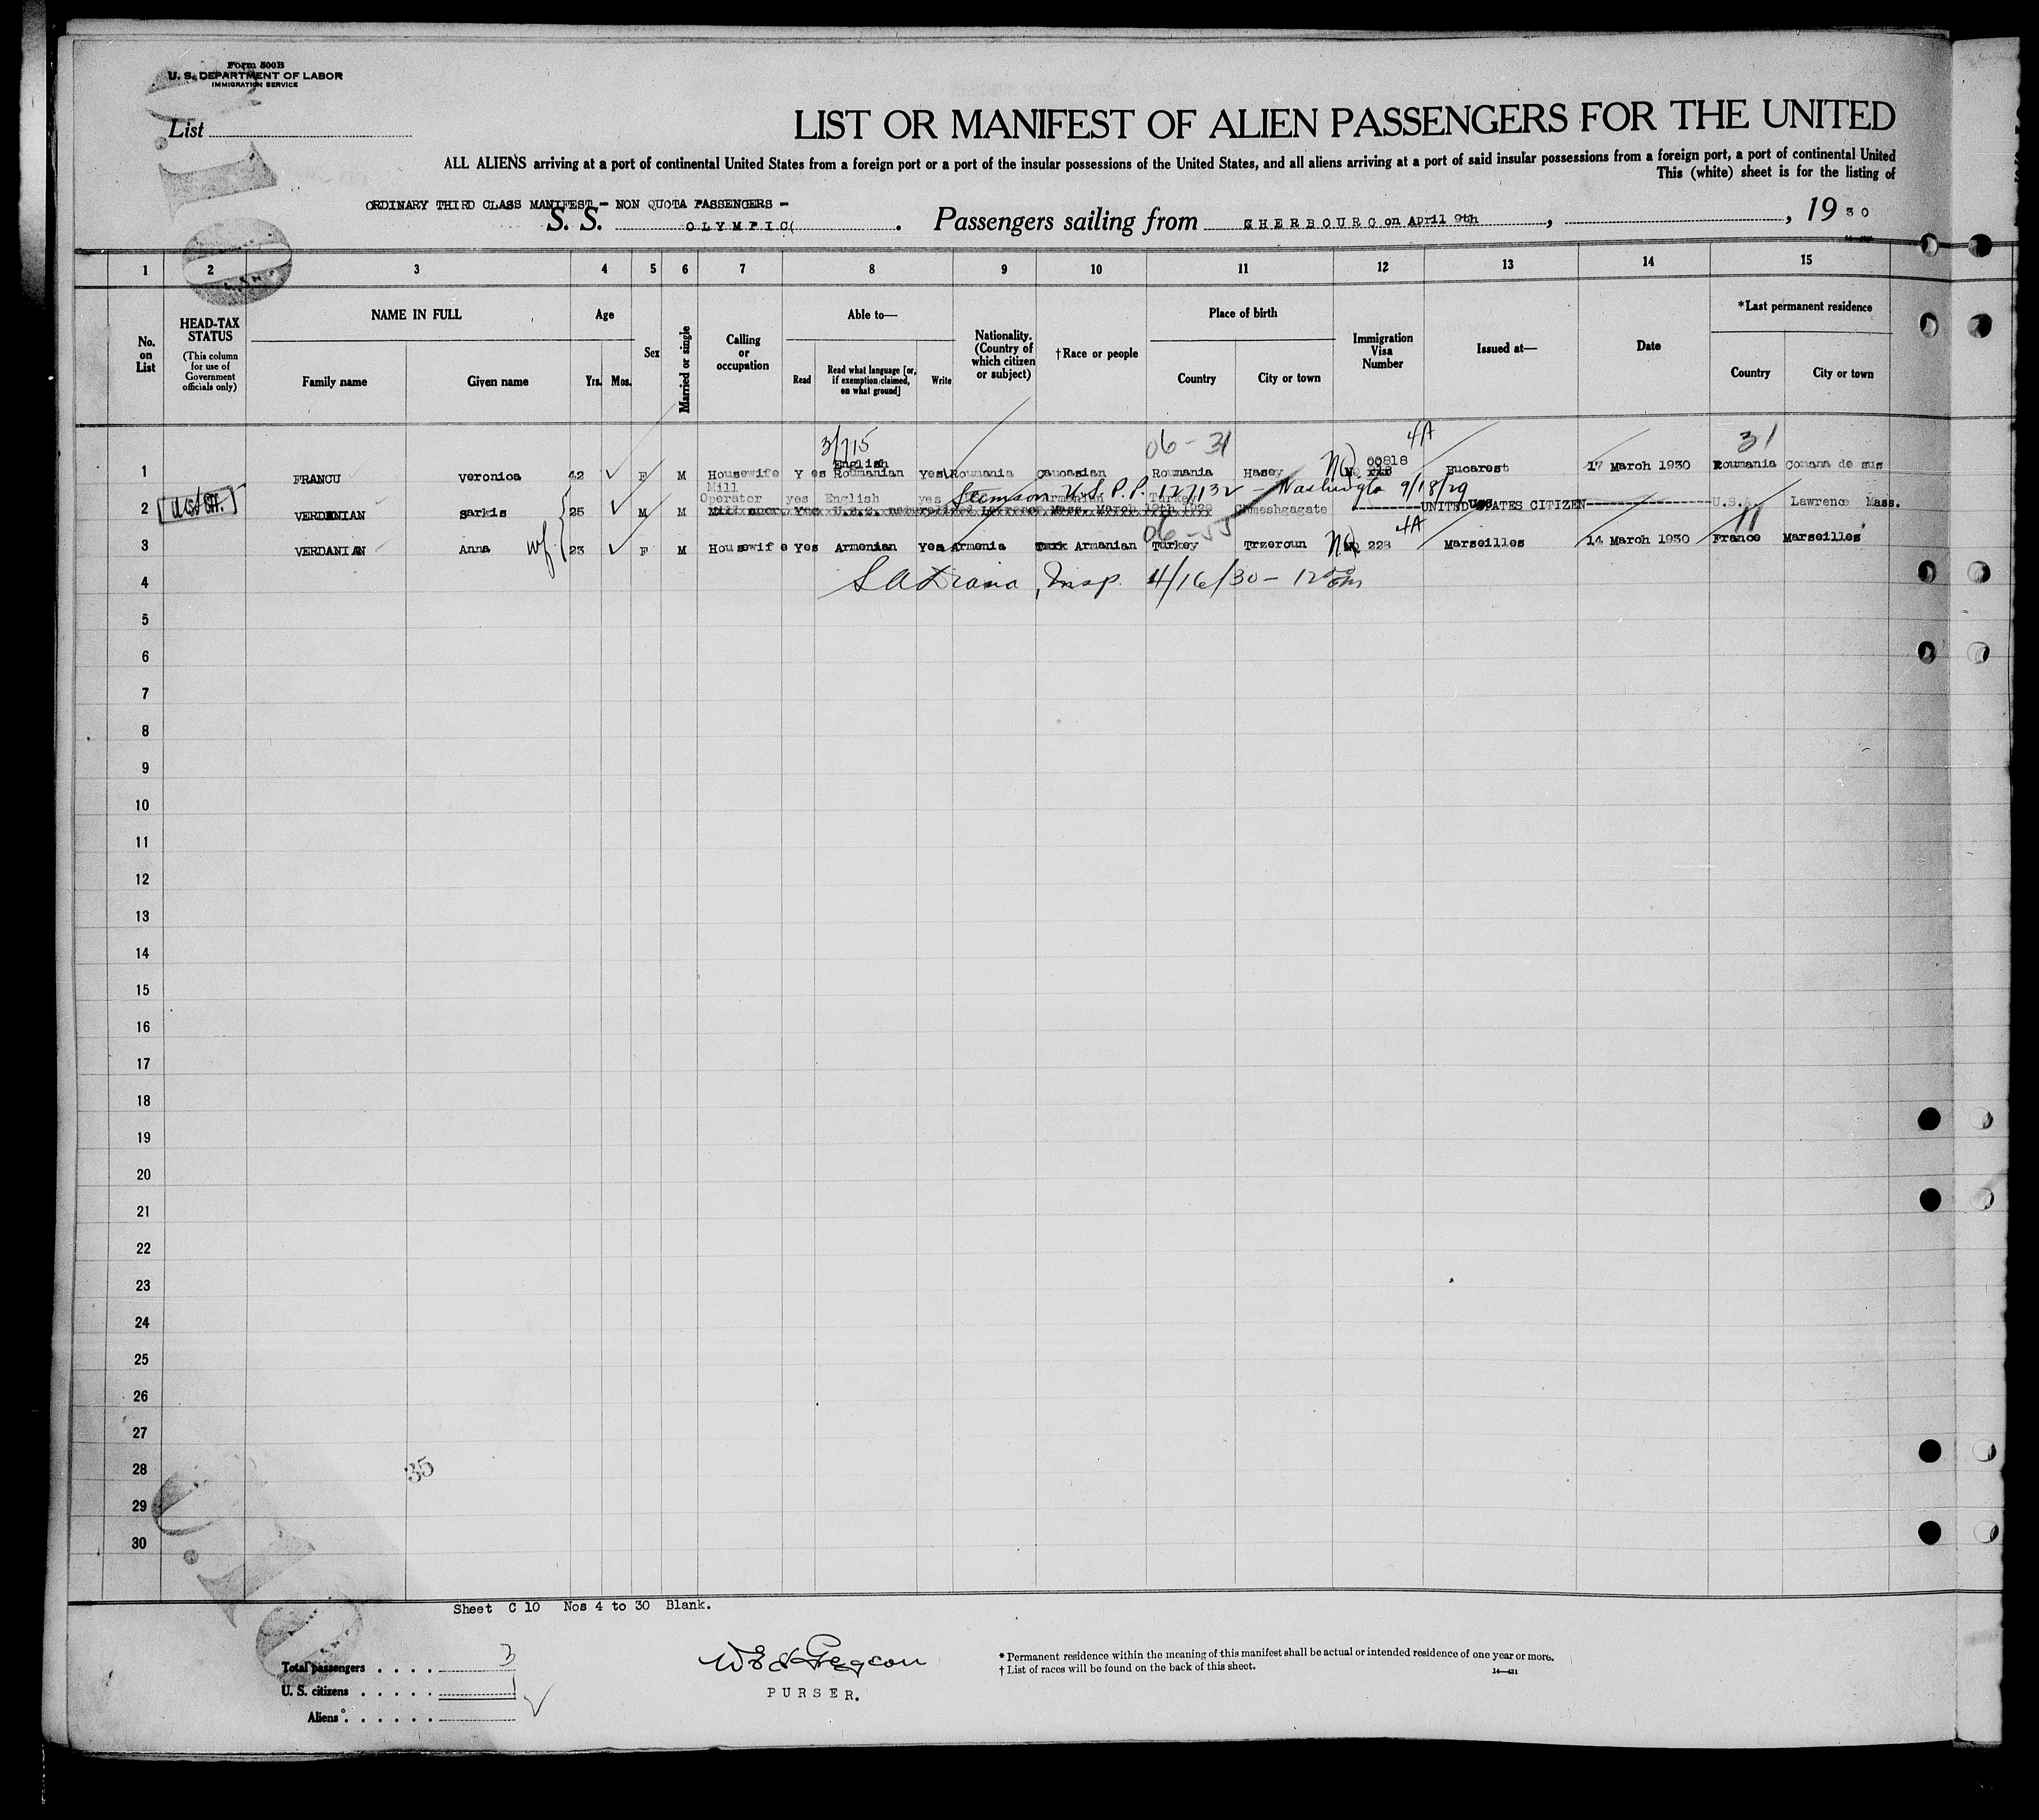 Form 500B
U. S. DEPARTMENT OF LABOR
IMMIGRATION SERVICE
List
LIST OR MANIFEST OF ALIEN PASSENGERS FOR THE UNITED
ALL ALIENS arriving at a port of continental United States from a foreign port or a port of the insular possessions of the United States, and all aliens arriving at a port of said insular possessions from a foreign port, a port of continental United
This (white) sheet is for the listing of
ORDINARY THIRD CLASS MANIFEST - NON QUOTA PASSENGERS -
S. S. OLYMPIC( . Passengers sailing from CHERBOURG on April 9th , , 19 30
1 2 3 4 5 6 7 8 9 10 11 12 13 14 15
No. on List
HEAD-TAX STATUS
(This column for use of Government officials only)
NAME IN FULL
Family name Given name
Age
Yrs. Mos.
Sex
Married or single
Calling or occupation
Able to—
Read Read what language [or, if exemption claimed, on what ground] Write
Nationality. (Country of which citizen or subject)
†Race or people
Place of birth
Country City or town
Immigration Visa Number
Issued at—
Date
*Last permanent residence
Country City or town
3/715 06-31 4A 31
English 00818
1 FRANCU Veronica 42 F M Housewife Yes Roumanian Yes Roumania Caucasian Roumania Hasey NQ Bucarest 17 March 1930 Roumania Comana de sus
Mill
Operator yes English yes U.S.P.P. 127132 - Washington 9/18/29 Armenian Turkey
2 VERDANIAN Sarkis 25 M M Chmeshgagate UNITED STATES CITIZEN U.S.A. Lawrence Mass.
06-55 4A 11
3 VERDANIAN Anna wf 23 F M Housewife Yes Armenian Yes Armenia Armanian Turkey Trzeroun NQ 228 Marseilles 14 March 1930 France Marseilles
4 Insp. 4/16/30 -
5
6
7
8
9
10
11
12
13
14
15
16
17
18
19
20
21
22
23
24
25
26
27
28
35
29
30
Sheet C 10 Nos 4 to 30 Blank.
Total passengers . . . . 3
U. S. citizens . . . . . 1
Aliens . . . . . .
PURSER.
* Permanent residence within the meaning of this manifest shall be actual or intended residence of one year or more.
† List of races will be found on the back of this sheet.
14—431